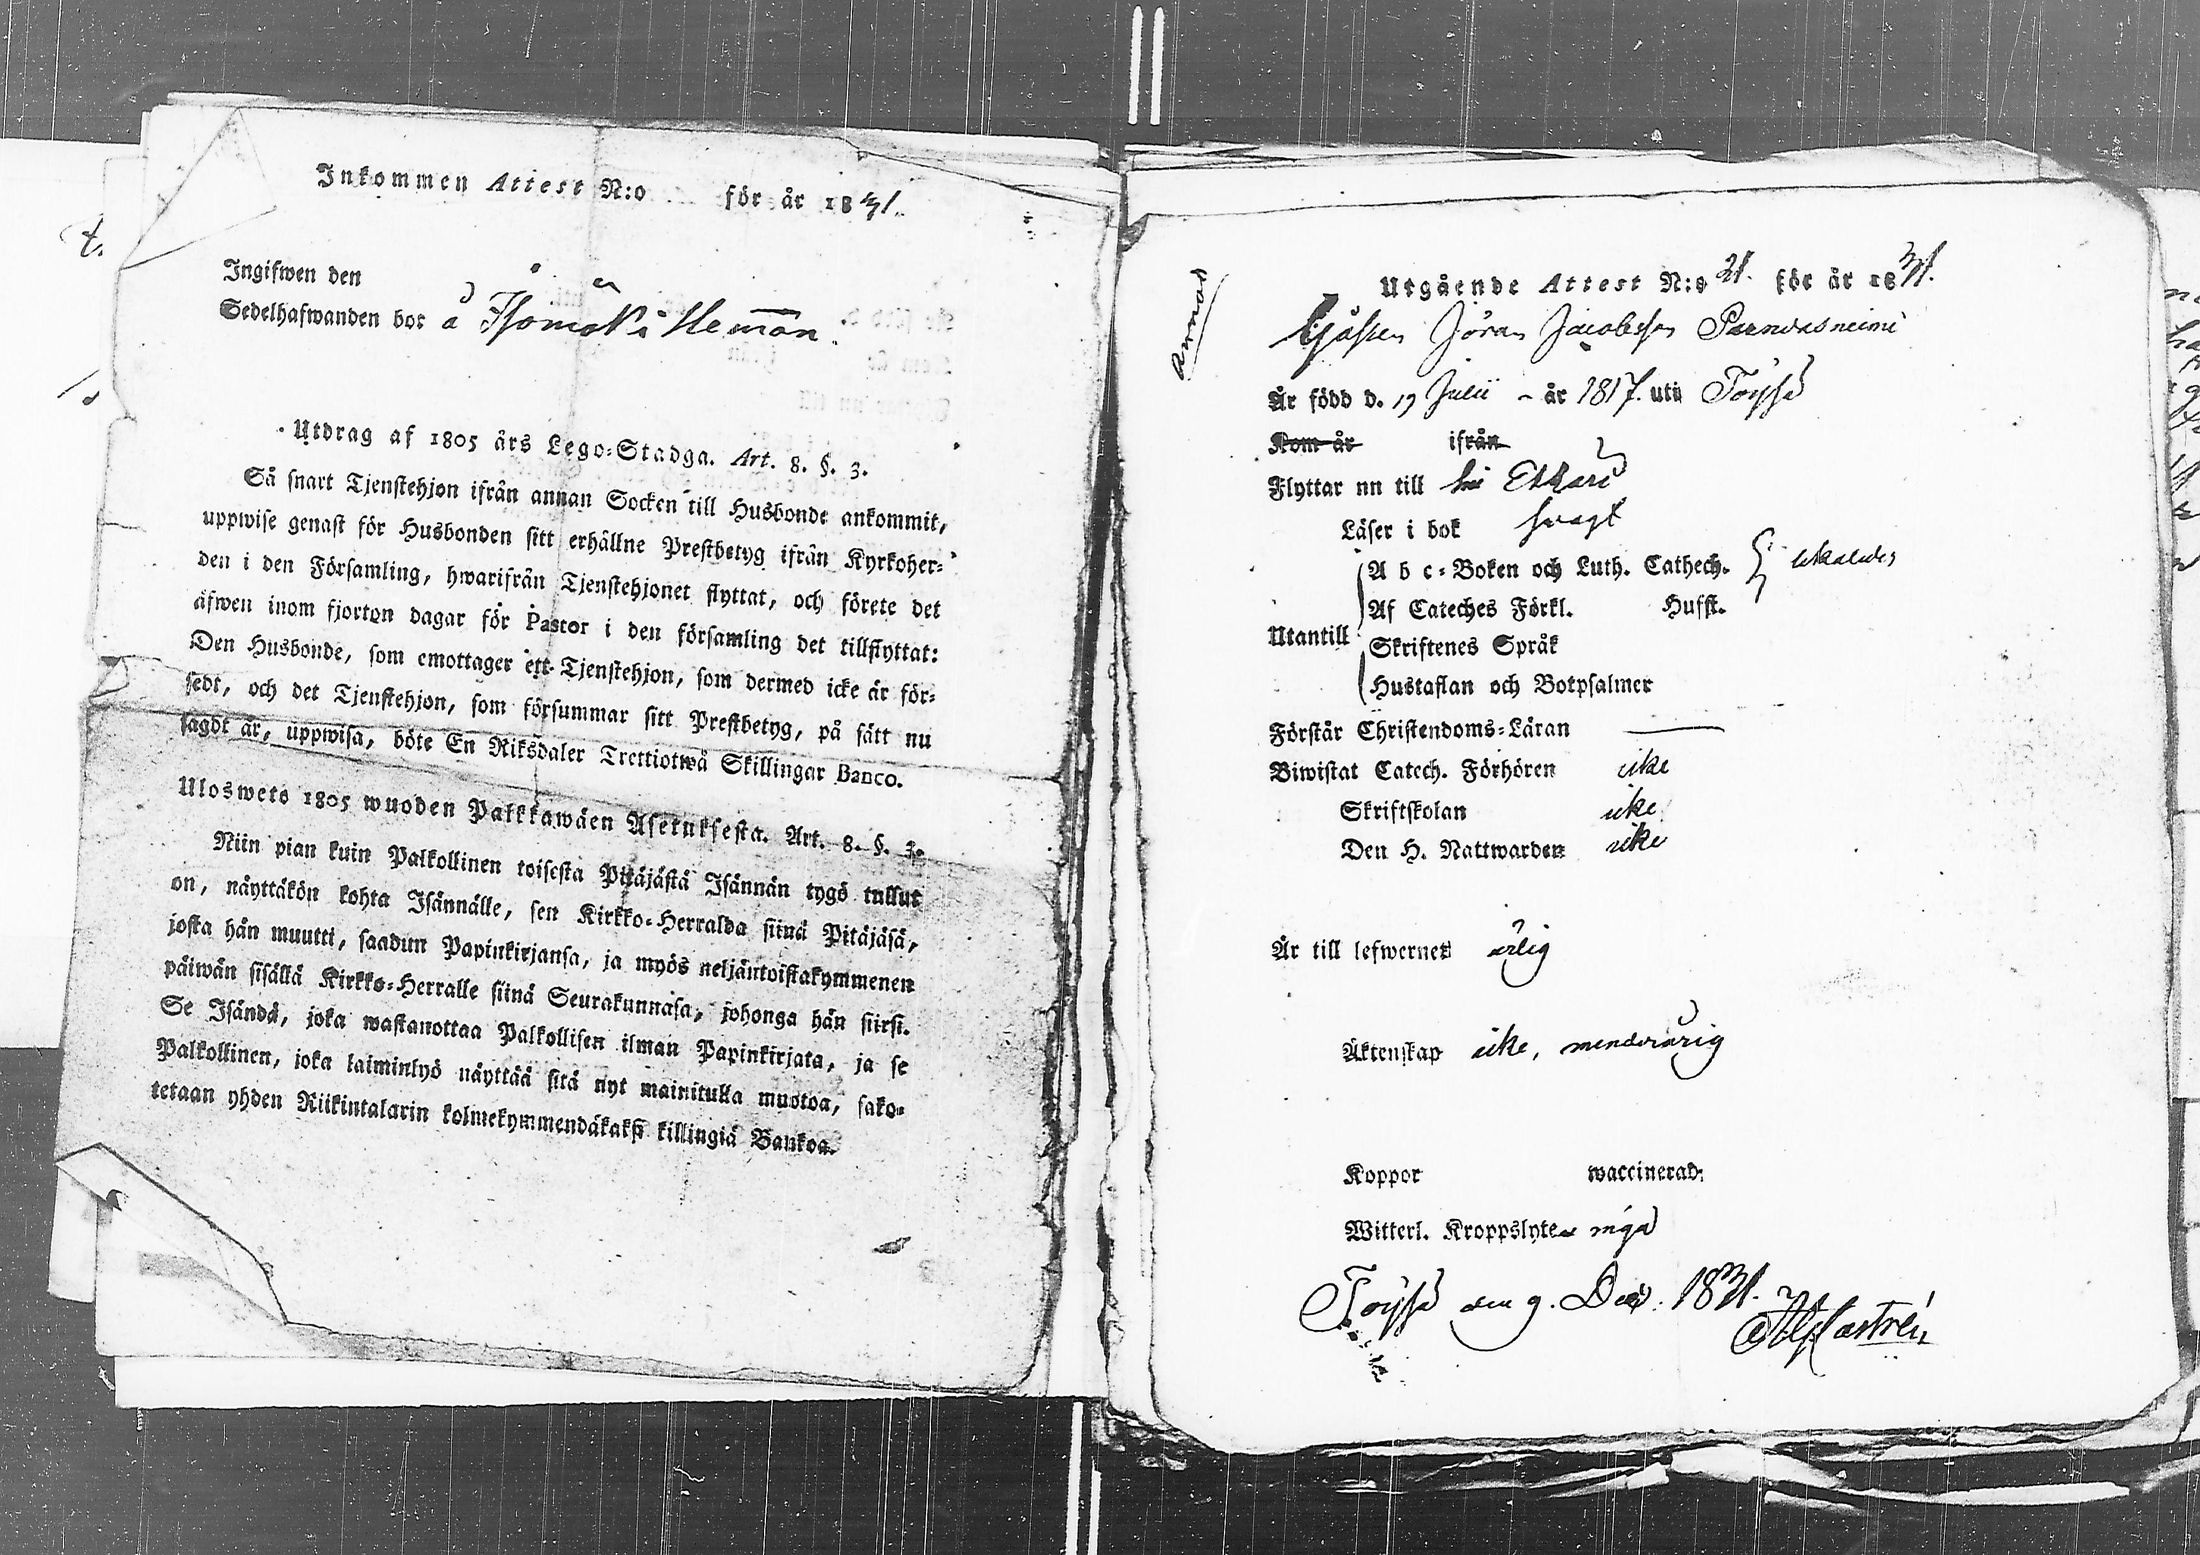 Inkommen Attest N:o för år 1831.
Ingifwen den
Sedelhafwanden bor å Isomäki Heman.
Utdrag af 1805 års Lego-Stadga. Art. 8. §. 3.
Så snart Tjenstehjon ifrån annan Socken till Husbonde ankommit,
uppwise genast för Husbonden sitt erhållne Prestbetyg ifrån Kyrkoher-
den i den Församling, hwarifrån Tjenstehjonet flyttat, och förete det
äfwen inom fjorton dagar för Pastor i den församling det tillflyttat:
Den Husbonde, som emottager ett Tjenstehjon, som dermed icke är för-
sedt, och det Tjenstehjon, som försummar sitt Prestbetyg, på sätt nu
sagdt är, uppwisa, böte En Riksdaler Trettiotwå Skillingar Banco.
Ulosweto 1805 wuoden Palkkawäen Asetuksesta. Art. 8. §. 3.
Niin pian kuin Palkollinen toisesta Pitäjästä Isännän tygö tullut
on, näyttäkön kohta Isännälle, sen Kirkko-Herralda siinä Pitäjäsä,
josta hän muutti, saadun Papinkirjansa, ja myös neljäntoistakymmenen
päiwän sisällä Kirkko-Herralle siinä Seurakunnasa, johonga hän siirsi.
Se Isändä, joka wastanottaa Palkollisen ilman Papinkirjata, ja se
Palkollinen, joka laiminlyö näyttää sitä nyt mainitulla muotoa, sako-
tetaan yhden Riikintalarin kolmekymmendäkaksi killingiä Bankoa.
Utgående Attest N:o 21. för år 1831.
Gåssen Jöran Jacobsson Parnwasneimi
Är född d. 19 Julii - år 1817. uti Töysä
Kom år ifrån
Flyttar nu till Etseri
Läser i bok svagt
A b c-Boken och Luth. Cathech.
Af Cateches Förkl. Husst.
Utantill
Skriftenes Språk
Hustaflan och Botpsalmer
Förstår Christendoms-Läran
Biwistat Catech. Förhören icke
Skriftskolan icke
Den H. Nattwarden icke
Är till lefwernet ärlig
Äktenskap icke, minderårig
Koppor waccinerad.
Witterl. Kroppslyten inga
Töysä den 9. Dec. 1831.
Castrén